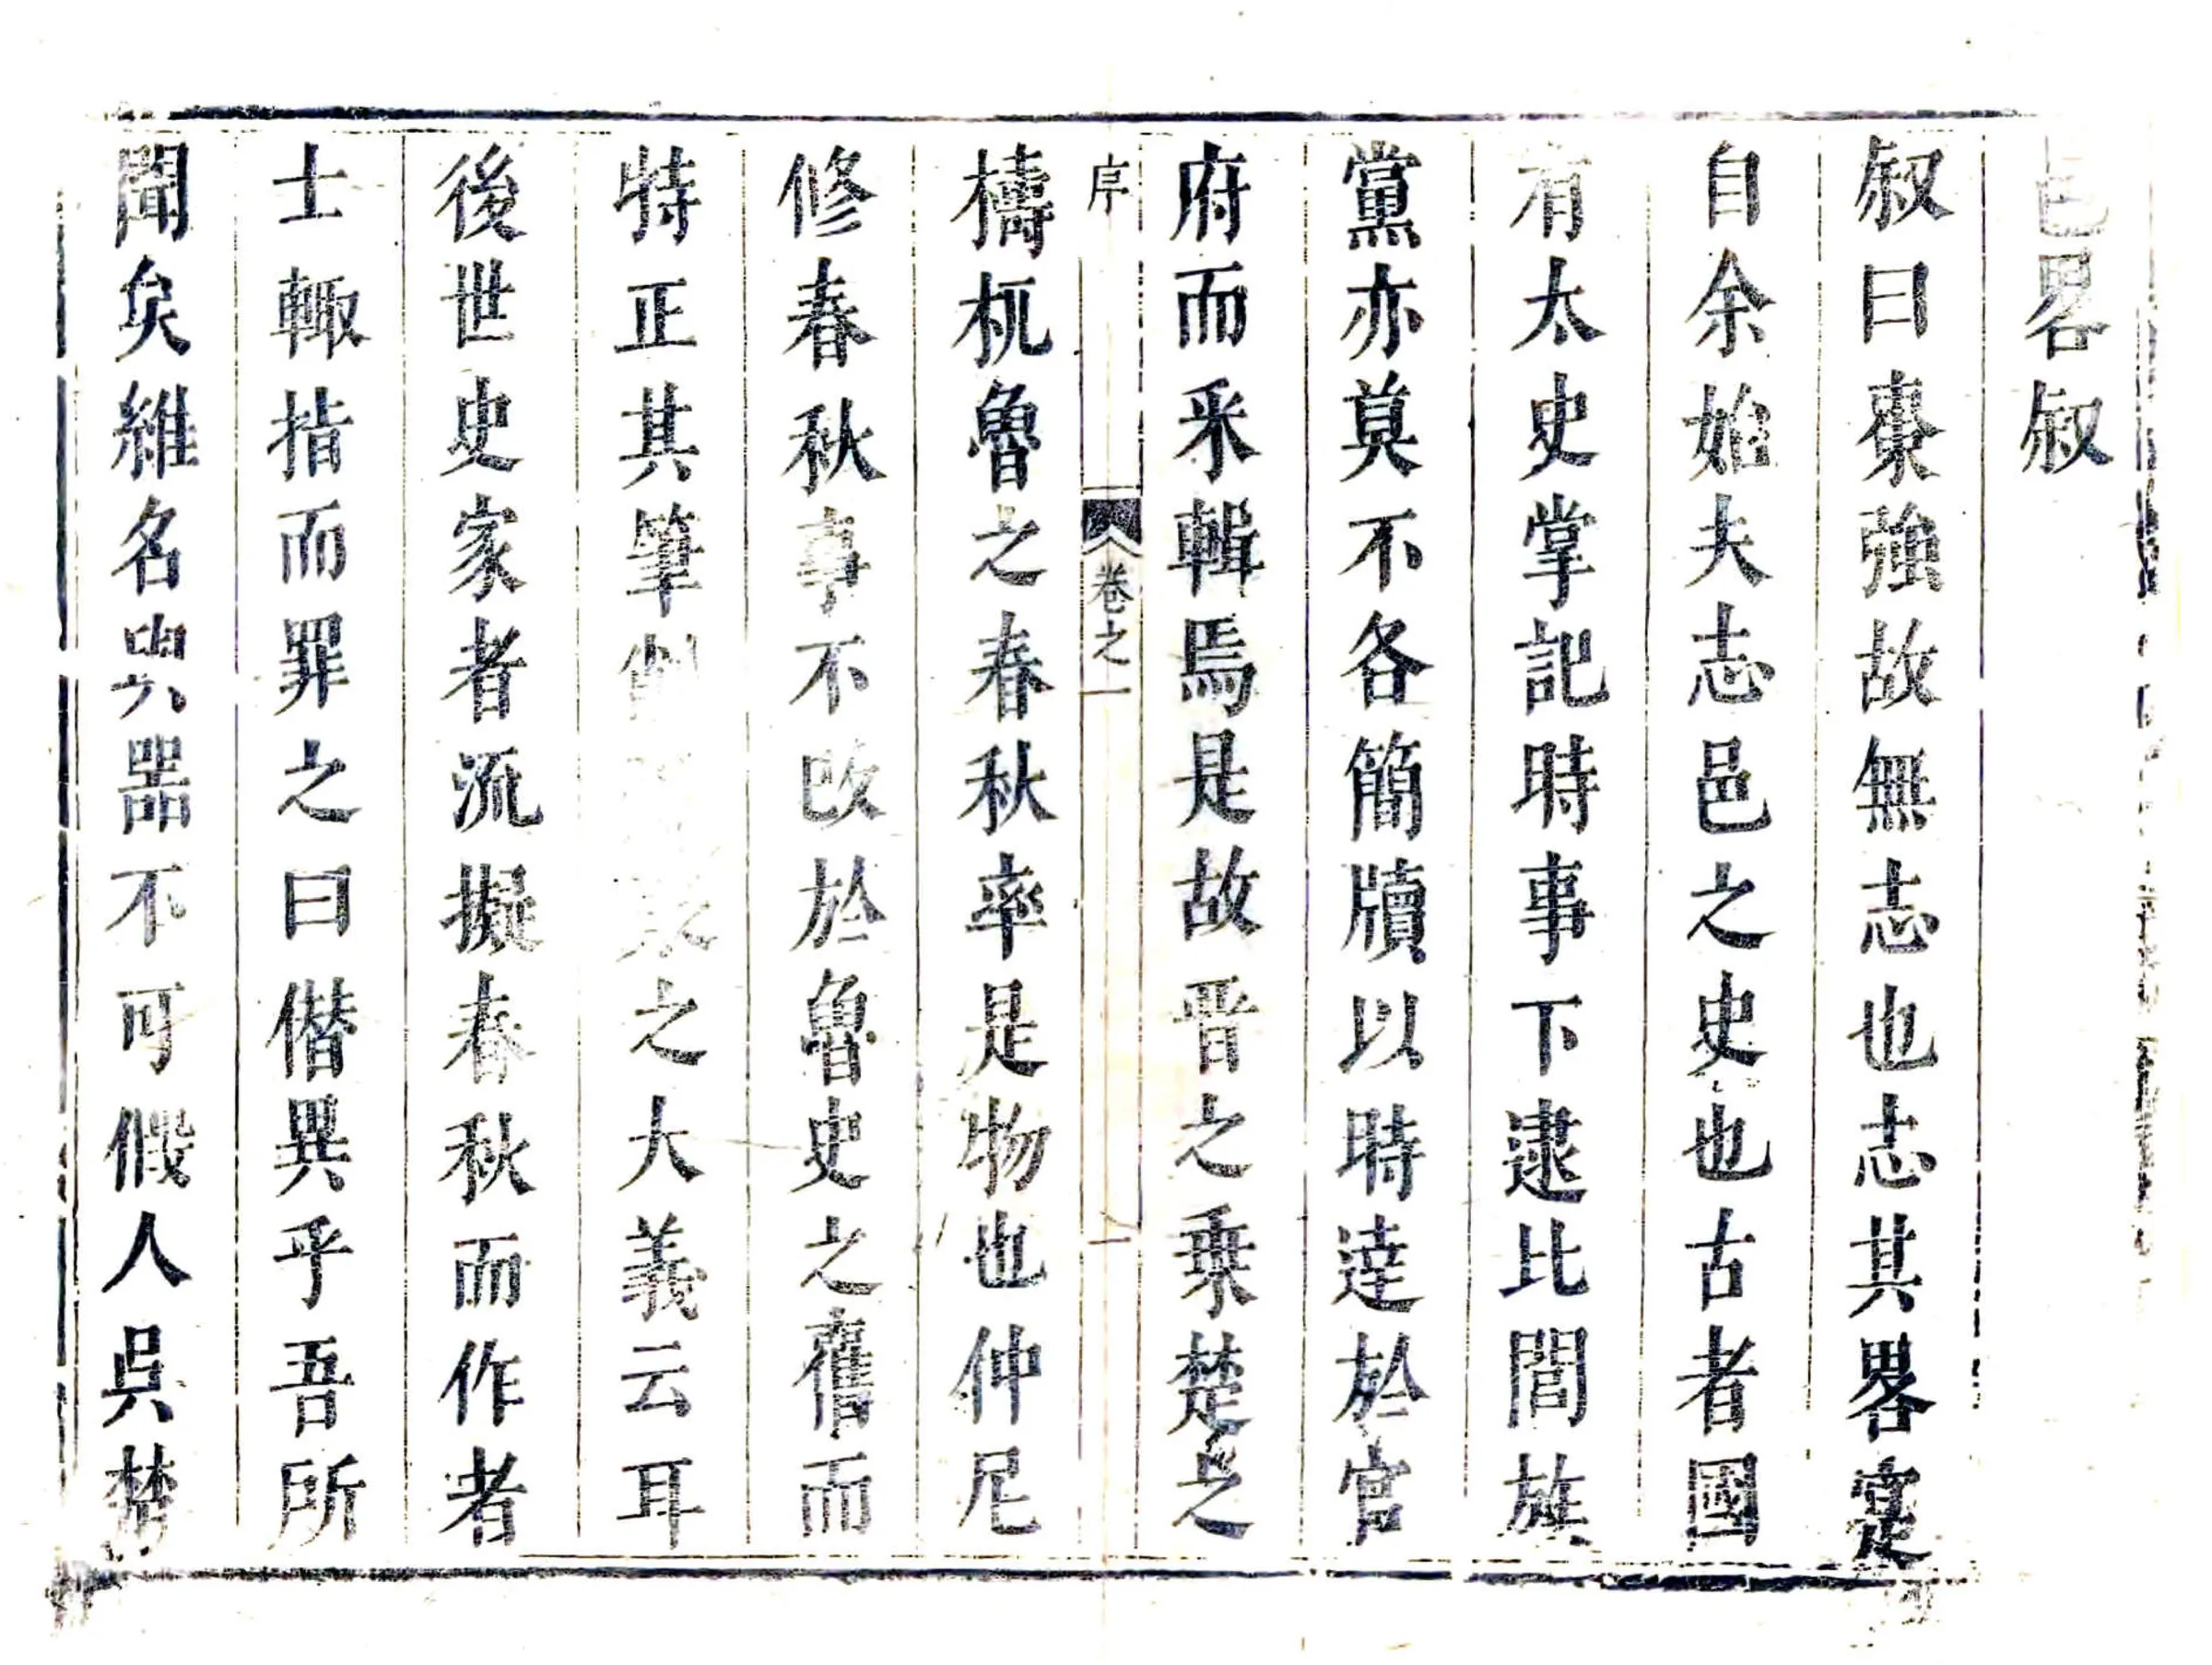 邑畧叙
叙曰棗強故無志也志其畧寔
自余始夫志邑之史也古者國
有太史掌記時事下逮比閭族
黨亦莫不各簡牘以時達於官
府而采輯焉是故晋之乗楚之
序
卷之一
一
檮杌魯之春秋率是物也仲尼
修春秋事不改於魯史之舊而
特正其筆削之大義云耳
後世史家者流擬春秋而作者
士輙指而罪之曰僭異乎吾所
聞矣維名與器不可假人呉楚